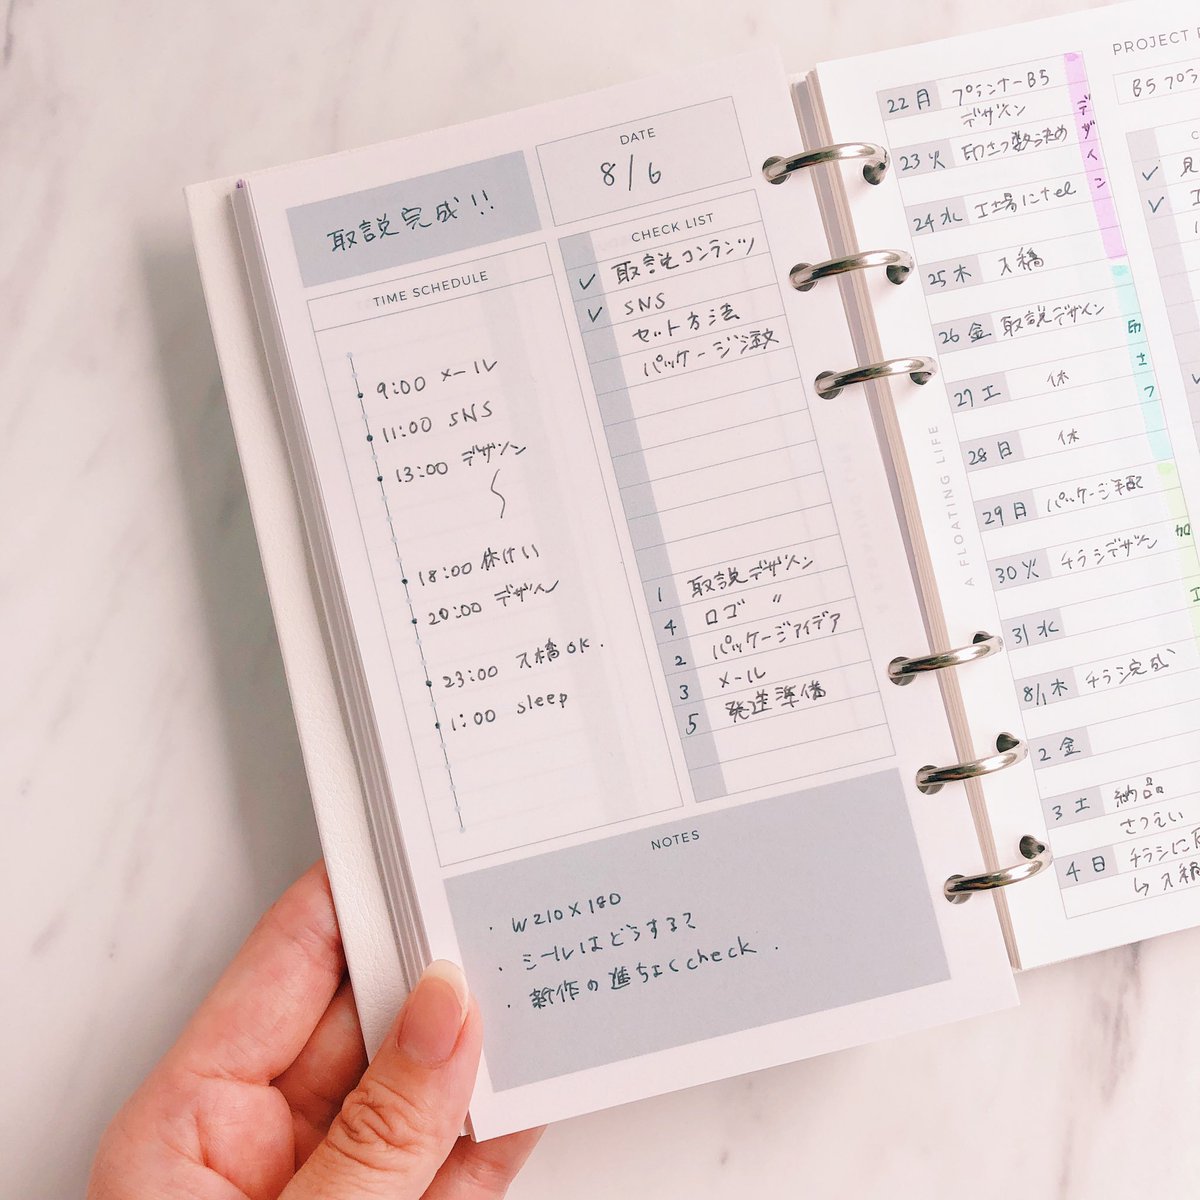 取説完成!!
DATE
8/6
TIME SCHEDULE
9:00 メール
11:00 SNS
13:00 デザイン
18:00 休けい
20:00 デザイン
23:00 入稿OK.
1:00 sleep
CHECK LIST
✓ 取説コンテンツ
✓ SNS
セット方法
パッケージ注文
1 取説デザイン
4 ロゴ 〃
2 パッケージアイデア
3 メール
5 発送準備
NOTES
・W210×180
・シールはどうする?
・新作の進ちょくcheck.
A FLOATING LIFE
22 月 プランナーB5
デザイン
23 火 印さつ数決め
24 水 工場にtel
25 木 入稿
26 金 取説デザイン
27 土 休
28 日 休
29 月 パッケージ手配
30 火 チラシデザイン
31 水
8/1 木 チラシ完成
2 金
3 土 納品
さつえい
4 日 チラシに
↳入稿
デザイン
印さつ
加
PROJECT
B5プラ
✓ 見
✓